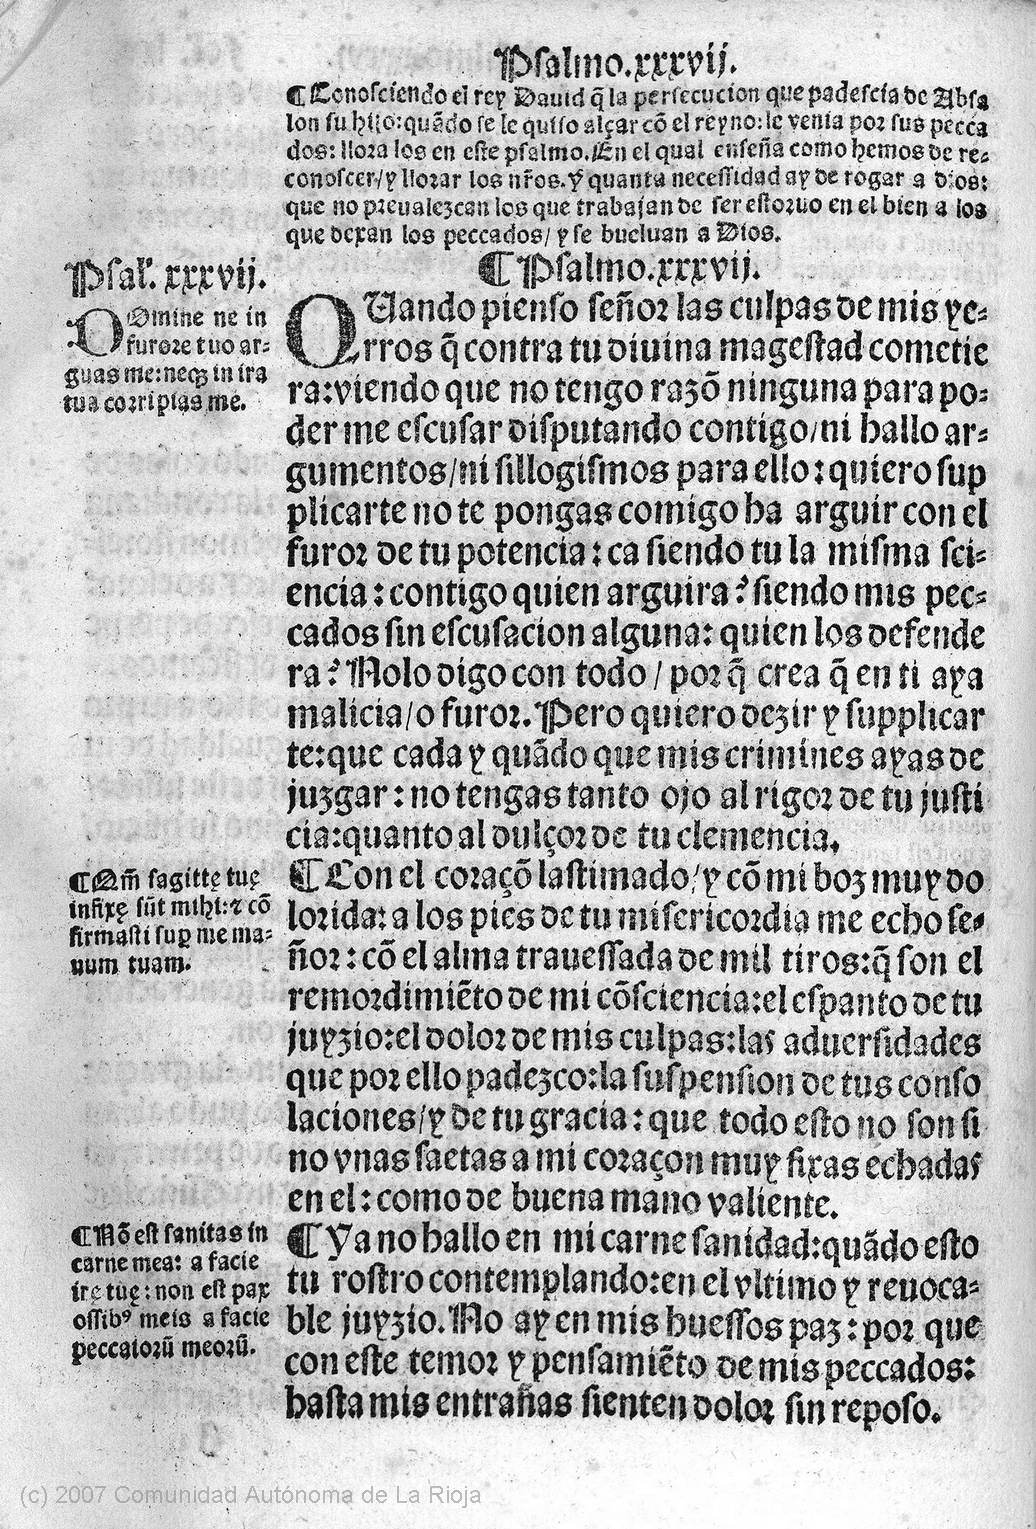 Psalmo.xxxvij.
¶Conosciendo el rey Dauid q̃ la persecucion que padescia de Absa
lon su hijo:quãdo se le quiso alçar cõ el reyno:le venia por sus pecca
dos: llora los en este psalmo.En el qual enseña como hemos de re-
conoscer/y llorar los nr̃os.Y quanta necessidad ay de rogar a dios:
que no preualezcan los que trabajan de ser estoruo en el bien a los
que dexan los peccados/ y se bueluan a Dios.
Psal. xxxvij.
DOmine ne in
furore tuo ar-
guas me:neqꝫ in ira
tua corripias me.
¶Psalmo.xxxvij.
QUando pienso señor las culpas de mis ye-
rros q̃ contra tu diuina magestad cometie
ra:viendo que no tengo razõ ninguna para po-
der me escusar disputando contigo/ni hallo ar-
gumentos/ni sillogismos para ello:quiero sup
plicarte no te pongas comigo ha arguir con el
furor de tu potencia: ca siendo tu la misma sci-
encia:contigo quien arguira? siendo mis pec-
cados sin escusacion alguna: quien los defende
ra? Nolo digo con todo / por q̃ crea q̃ en ti aya
malicia/o furor.Pero quiero dezir y supplicar
te:que cada y quãdo que mis crimines ayas de
juzgar: no tengas tanto ojo al rigor de tu justi
cia:quanto al dulçor de tu clemencia.
¶Qm̃ sagittę tuę
infixę sũt mihi:⁊ cõ
firmasti suꝑ me ma-
num tuam.
¶Con el coraçõ lastimado/y cõ mi boz muy do
lorida: a los pies de tu misericordia me echo se-
ñor: cõ el alma trauessada de mil tiros:q̃ son el
remordimiẽto de mi cõsciencia:el espanto de tu
juyzio:el dolor de mis culpas:las aduersidades
que por ello padezco:la suspension de tus conso
laciones/y de tu gracia: que todo esto no son si
no vnas saetas a mi coraçon muy fixas echadas
en el: como de buena mano valiente.
¶Nõ est sanitas in
carne mea: a facie
irę tuę: non est pax
ossibꝰ meis a facie
peccatorũ meorũ.
¶Ya no hallo en mi carne sanidad:quãdo esto
tu rostro contemplando:en el vltimo y reuoca-
ble juyzio.No ay en mis huessos paz: por que
con este temor y pensamiẽto de mis peccados:
hasta mis entrañas sienten dolor sin reposo.
(c) 2007 Comunidad Autónoma de La Rioja